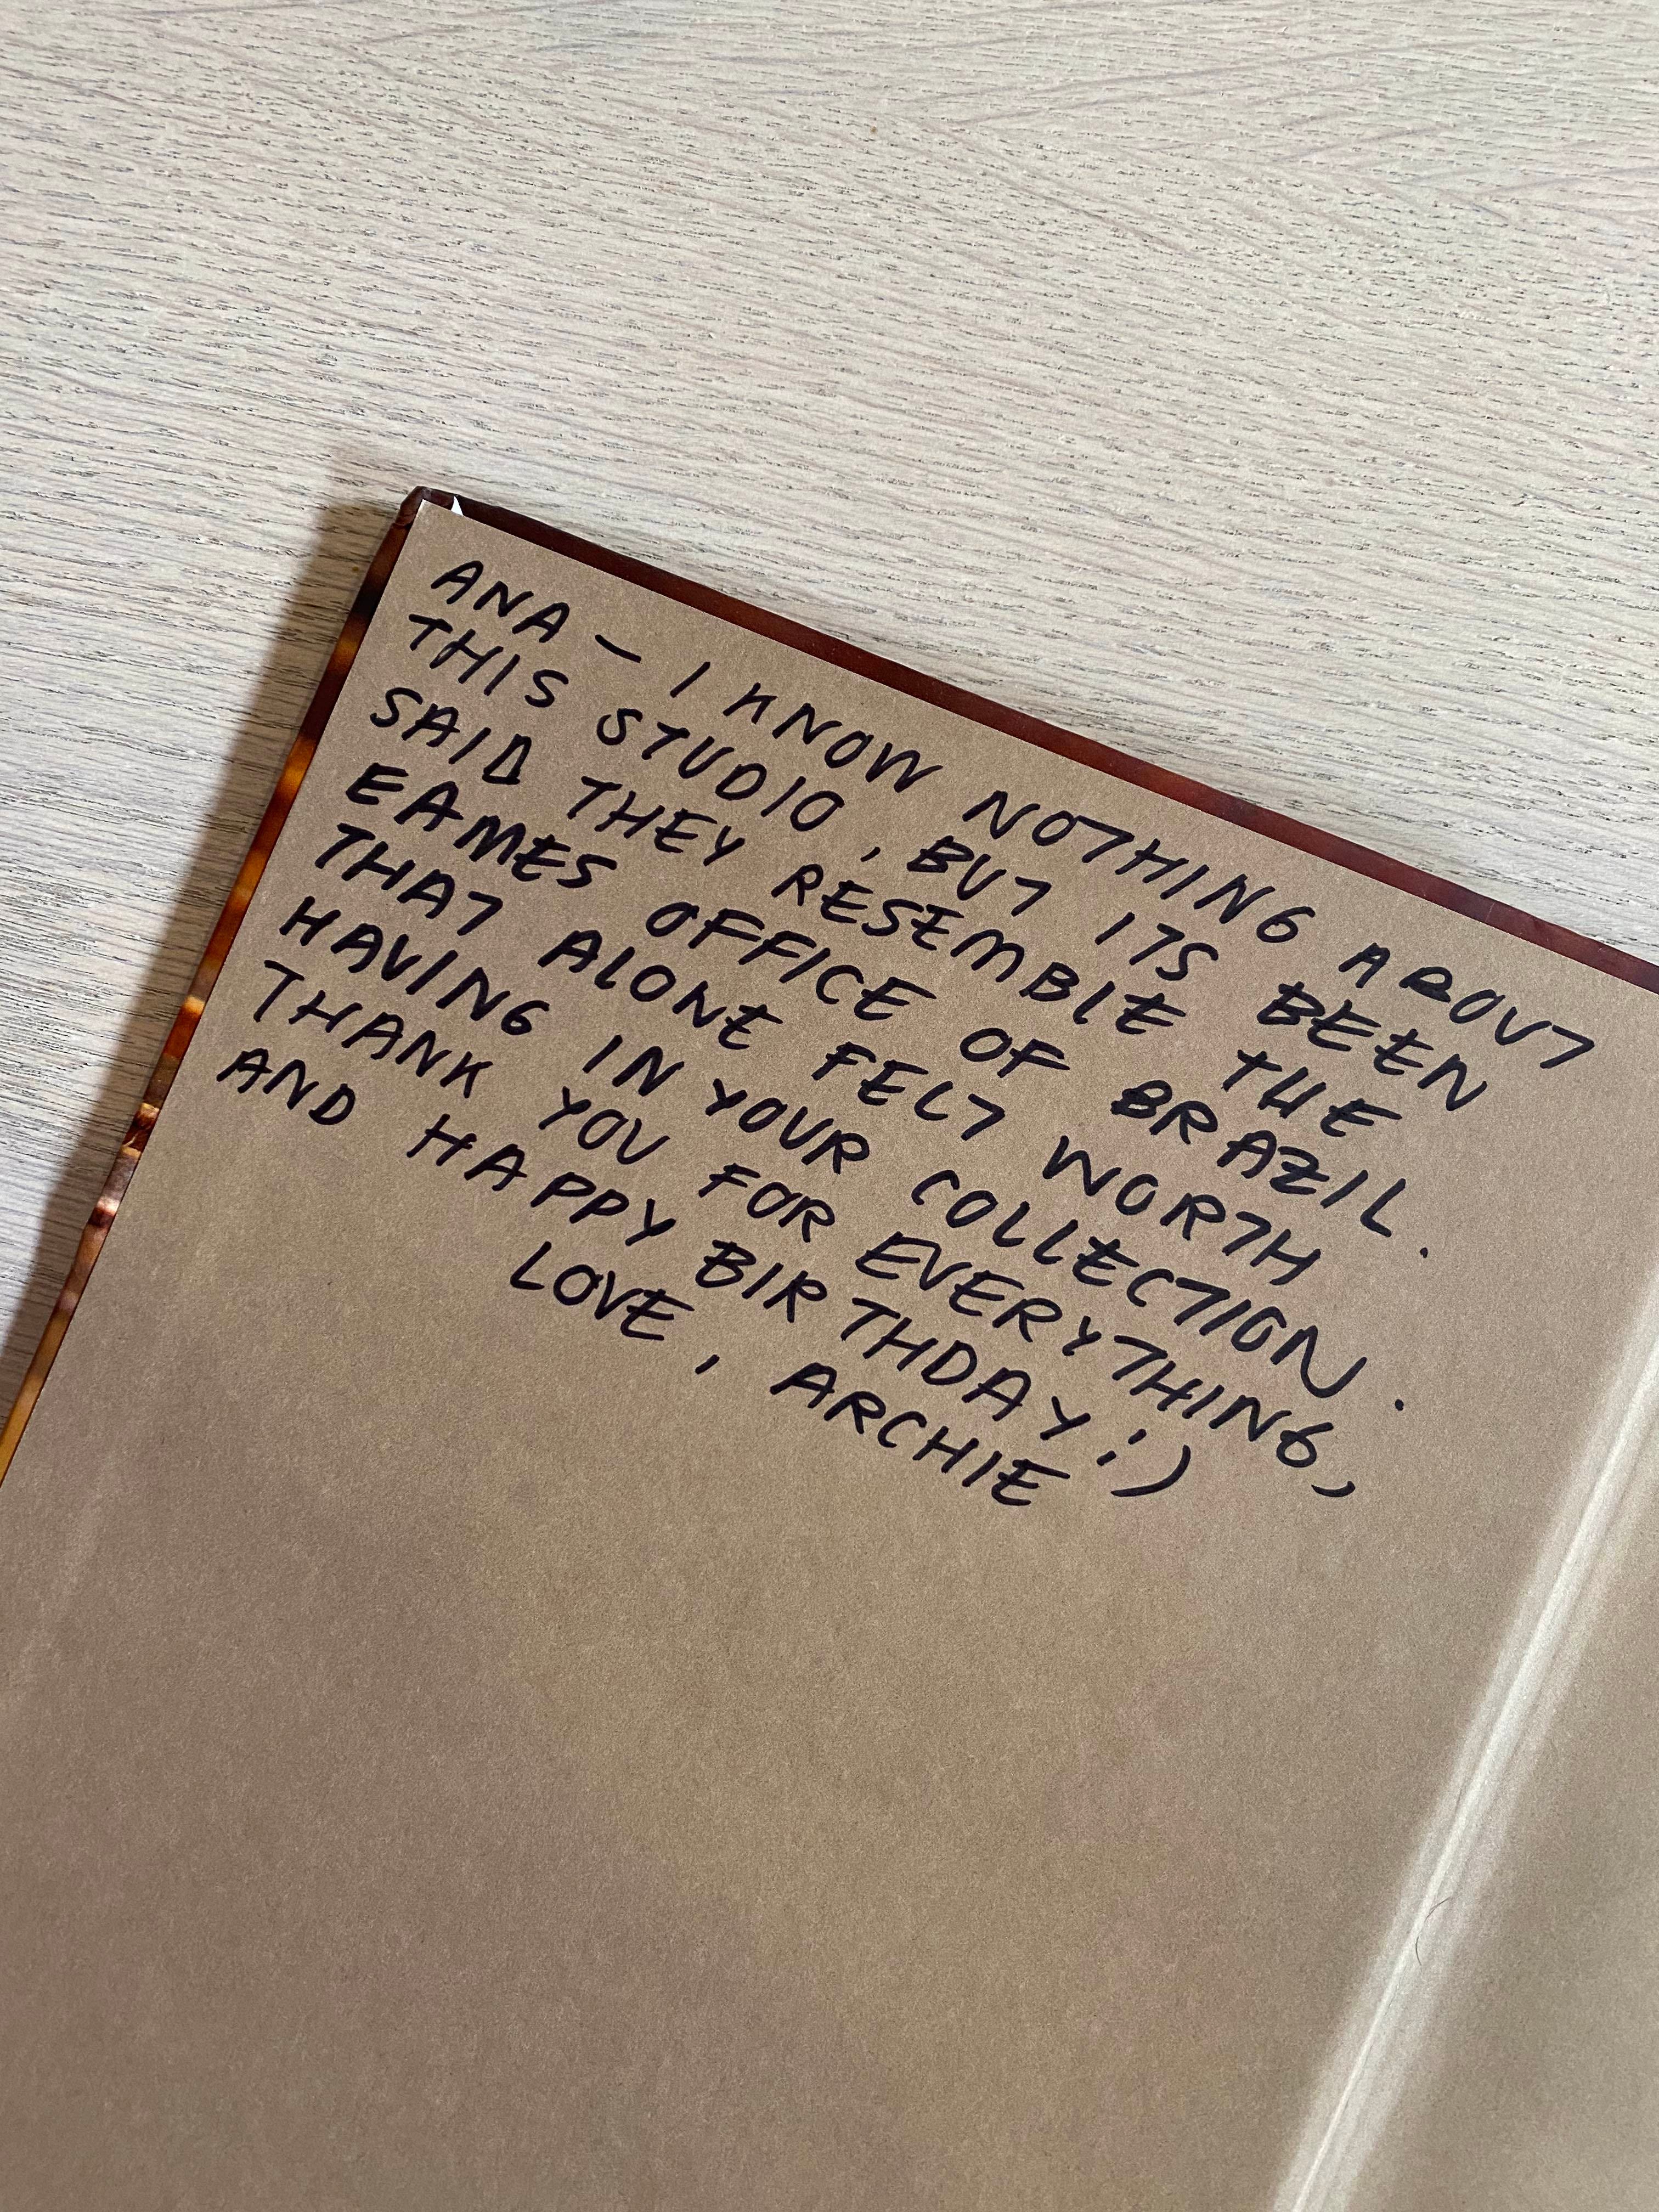 ANA — I KNOW NOTHING ABOUT
THIS STUDIO, BUT ITS BEEN
SAID THEY RESEMBLE THE
EAMES OFFICE OF BRAZIL.
THAT ALONE FELT WORTH
HAVING IN YOUR COLLECTION.
THANK YOU FOR EVERYTHING,
AND HAPPY BIRTHDAY :)
LOVE, ARCHIE